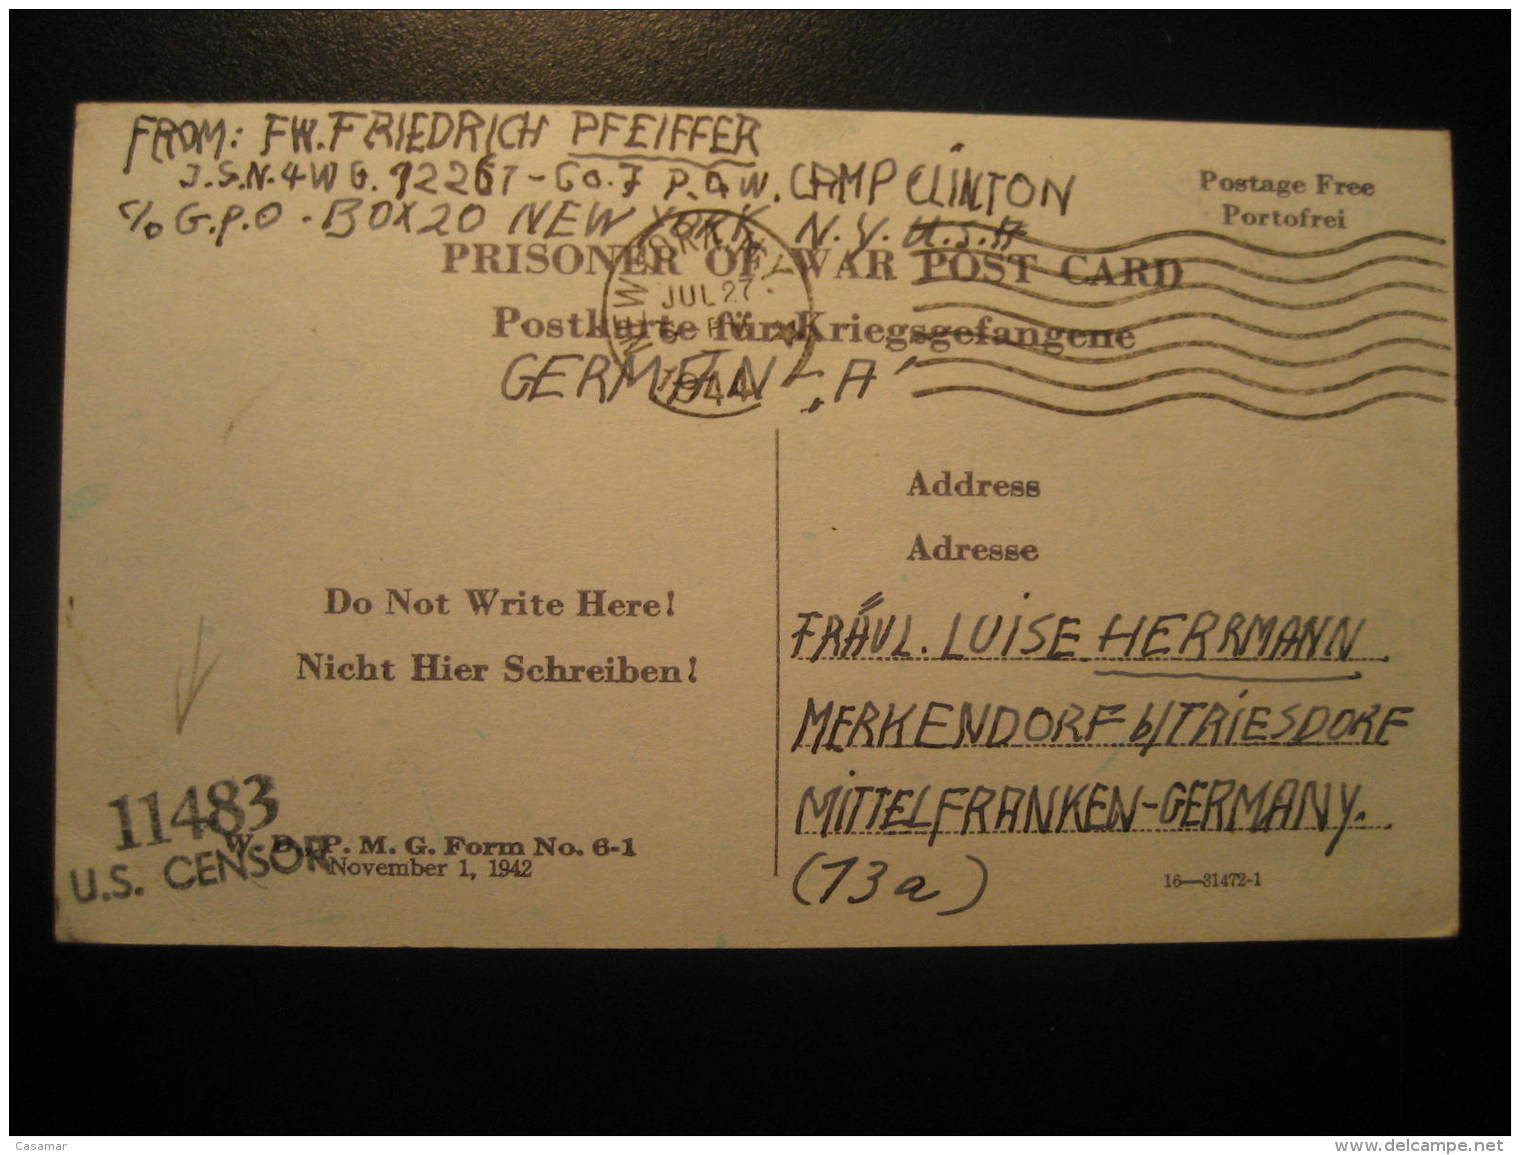 FROM: FW. FRIEDRICH PFEIFFER
J.S.N. 4WG. 12267 - Co. 7 P.O.W. CAMP CLINTON
c/o G.P.O. BOX 20 NEW YORK, N.Y. U.S.A
Postage Free
Portofrei
PRISONER OF WAR POST CARD
Postkarte für Kriegsgefangene
NEW YORK, N.Y.
JUL 27
PM
1944
GERMAN - "A"
Address
Adresse
Do Not Write Here!
Nicht Hier Schreiben!
FRÄUL. LUISE HERRMANN
MERKENDORF b/TRIESDORF
MITTELFRANKEN-GERMANY.
(13a)
11483
U.S. CENSOR
W. D., P. M. G. Form No. 6-1
November 1, 1942
16—31472-1
Casamar
www.delcampe.net